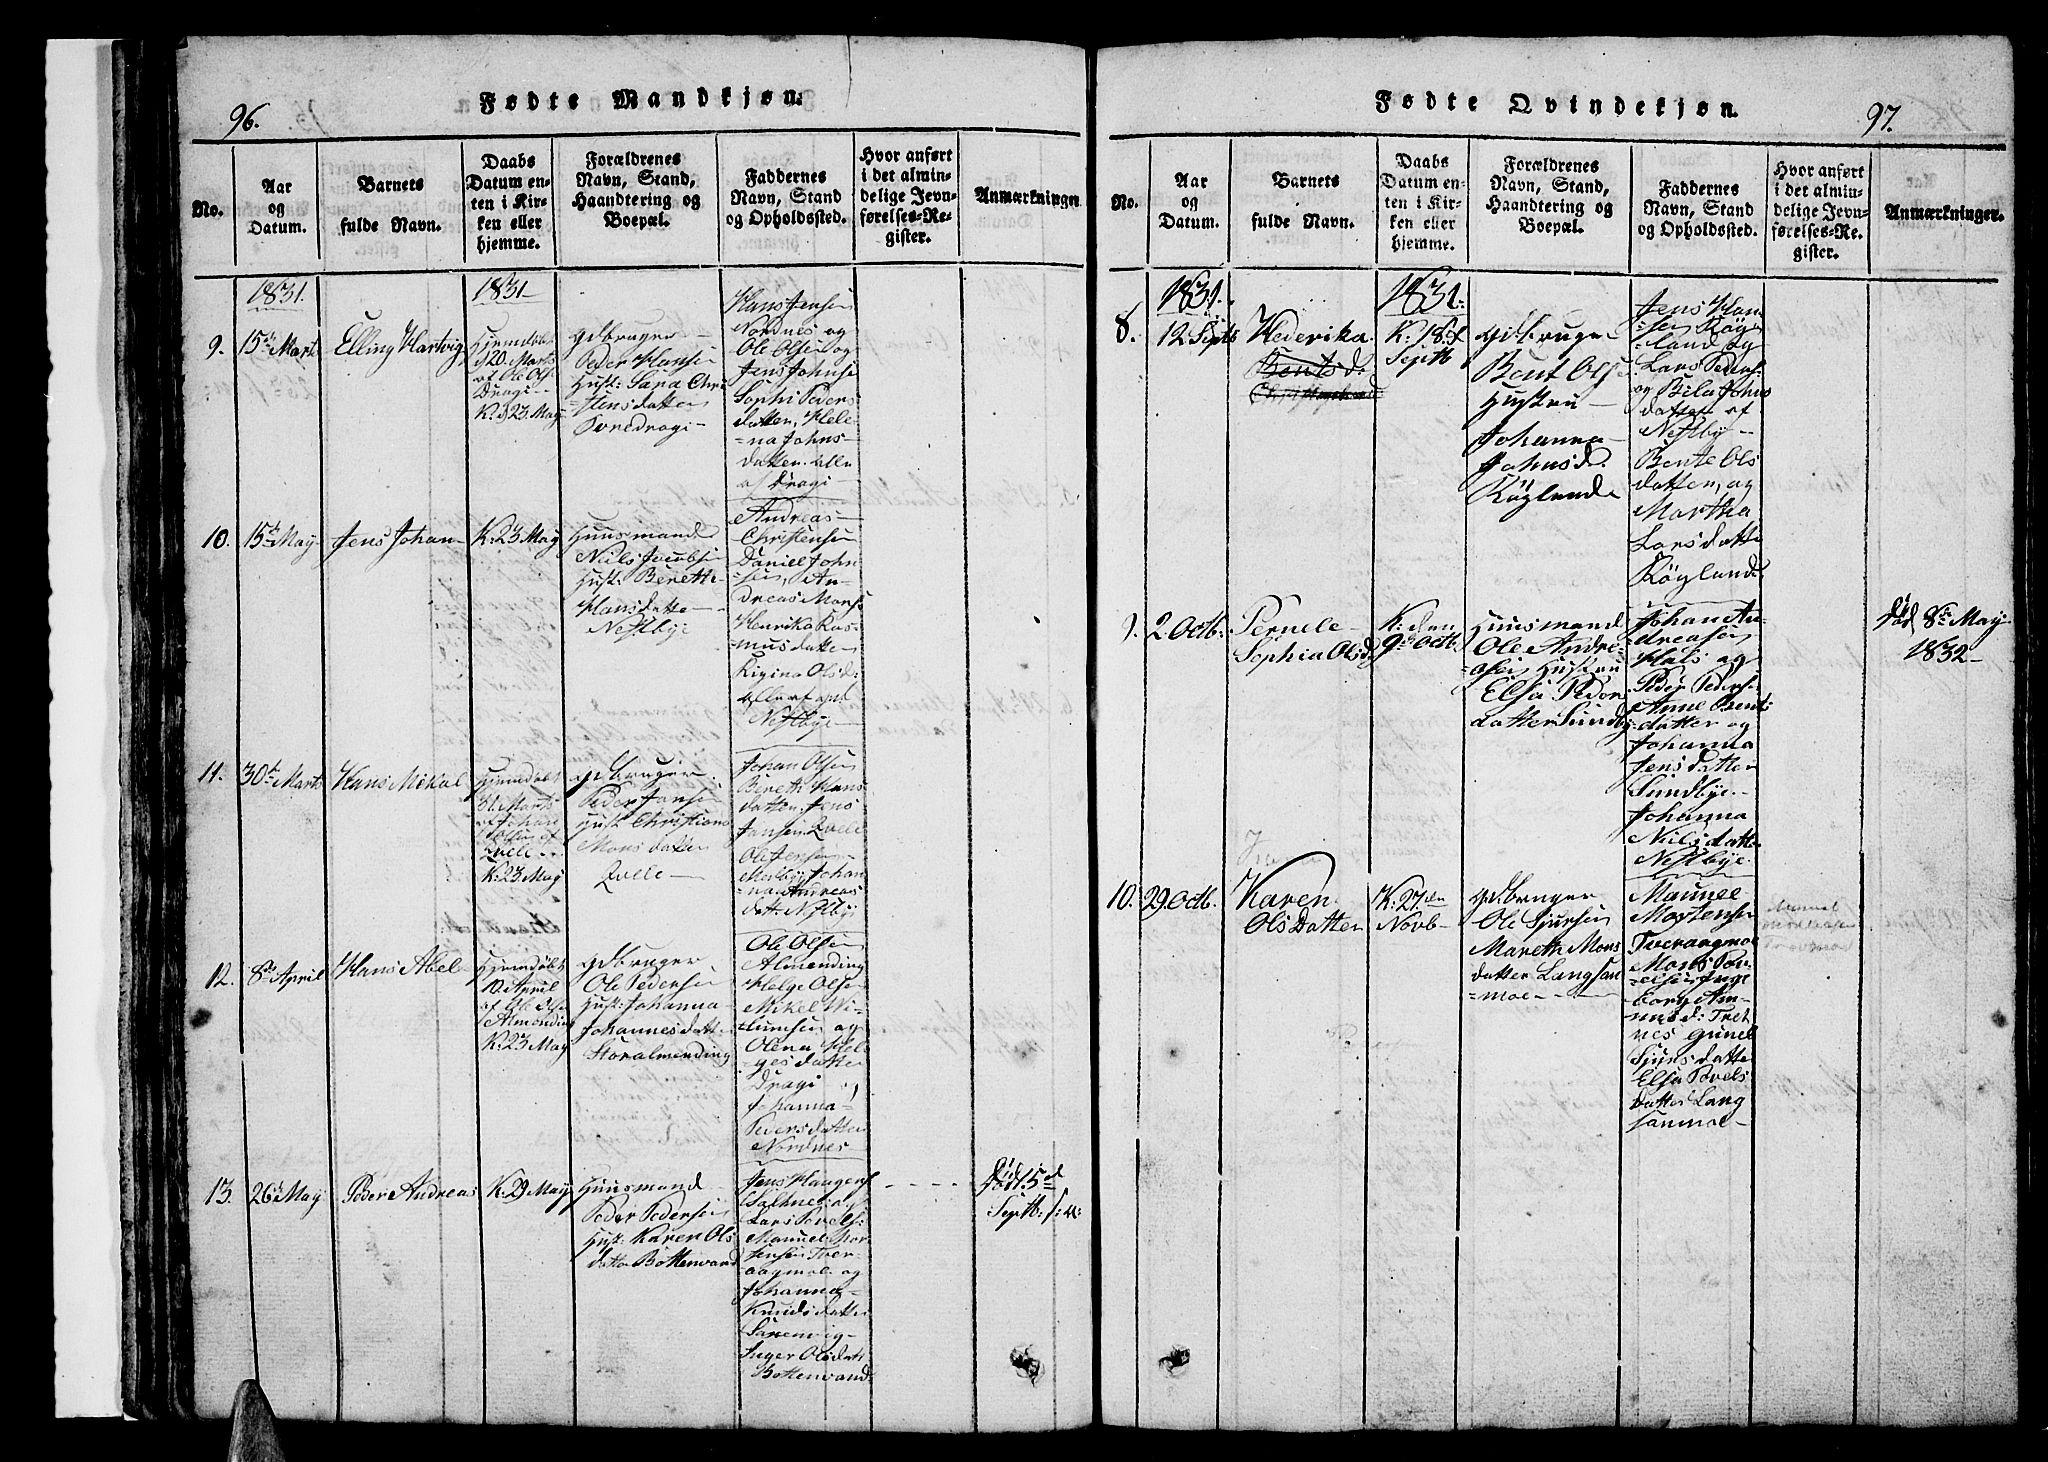 96.
Fødte Mandkjøn.
No.
Aar
og
Datum.
Barnets
fulde Navn.
Daabs
Datum en-
ten i Kir-
ken eller
hjemme.
Forældrenes
Navn, Stand,
Haandtering og
Boepæl.
Faddernes
Navn, Stand
og Opholdssted.
Hvor anført
i det almin-
delige Jevn-
førelses-Re-
gister.
Anmærkninger
1831.
1831
9.
15de Mart.
Elling Hartvig
Hjemdøbt
d 20. Marts
af Ole Ols:
Dragi
K: d 23 May
Gdbruger
Peder Hansen
Hust: Sara Chri
stensdatter
Øvredragi
Hans Jensen
Nordnes og
Ole Olsen og
Jens Johnsen
Sophi Peders
datter, Hele-
=na Johns-
datter alle
af Dragi
10.
15de May
Jens Johan
K: 23 May
Huusmand
Niels Jacobsen
Hust: Berette
Hansdatter
Nestbye
Andreas
Christensen
Daniel John
=sen, An-
dreas Mons
Henrika Ras
musdatter
Rigina Olsd:
alle af
Nestbye
11.
30te Marts
Hans Mikal
Hjemdøbt
31. Marts
af Johan
Olsen af
Qvele
K: 23 May
Gdbruger
Peder Jansen
Hust Christiana
Monsdatter
Qvelle
Johan Olsen
Bereth Hans
datter, Jens
Jansen Qvele
Ole Jensen
Medbye Johan
=na Andreas
datt: Nestbye
12.
8de April
Hans Abel
Hjemdøbt
10 April
af Ole Olsen
Almending
K: 23 May
Gdbruger
Ole Pedersen
Hust: Johanna
Johannesdatter
Storalmending
Ole Olsen
Almending
Helge Olsen
Mikel Wi-
lumsen og
Olena Hel-
gesdatter
Dragi
Johanna
Pedersdatter
Nordnes
13.
26de May
Peder Andreas
K: 29 May
Huusmand
Peder Pedersen
Hust: Karen Ols
datter Bottenvand
Jens Haagens
Saltnes og
Lars Povels:
Manuel Mor
tensen Tver
aagmoe og
Johanna
Knudsdatter
Saxenvig
Inger Olsdat
Bottenvand
Død 15de
Septb: s: a:
Fødte Qvindekjøn.
97.
No.
Aar
og
Datum.
Barnets
fulde Navn.
Daabs
Datum en-
ten i Kir-
ken eller
hjemme.
Forældrenes
Navn, Stand,
Haandtering og
Boepæl.
Faddernes
Navn, Stand
og Opholdssted.
Hvor anført
i det almin-
delige Jevn-
førelses-Re-
gister.
Anmærkninger.
1831.
1831.
8.
12 Septb
Hederika
Bentsd.
K: 18de
Septb
Gdbruger
Bent Olsen
Hustru
Johanna
Johnsd.
Røgland
Jens Han
=sen Røg
land og
Lars Peders:
og Bila Johns
datter af
Nestby
Bente Ols
datter, og
Martha
Larsdatter
Røgland.
9.
2. Octb:
Pernele
Sophia Olsd
K: den
9de Octb.
Huusmand
Ole Andre-
=asen Hustru
Elsa Peders
datter Sundby
Johan An-
=dreasen
Hals og
Peder Peders:
Anne Bents
datter og
Johanna
Jensdatter
Sundbye
Johanna
Nilsdatter
Nestbye
død 8de May
1832
10.
29. Octb.
Karen
Olsdatter
K: 27de
Novb
Gdbruger
Ole Sjursen
Mareth Mons
datter Langsan
=moe
Maunel
Mortensen
Tveraagmoe
Monses
Inge
borg Am-
Tret
nes Gunel
Sjursdatter
Elsa Povels
datter Lang
sanmoe